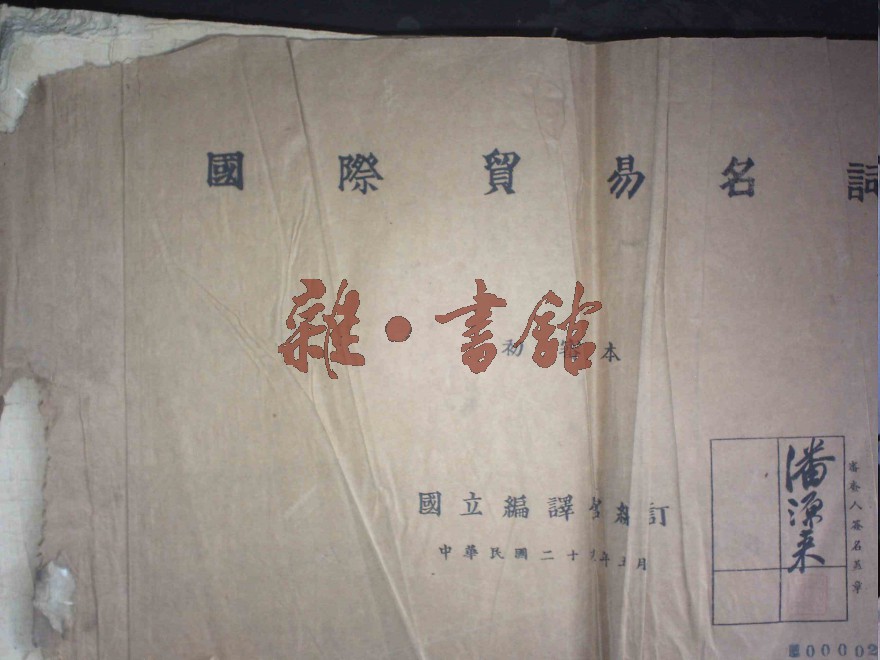 國際貿易名詞
雜·書館
初 本
國立編譯館 訂
中華民國二十 年 月
審查人簽名蓋章
潘源来
00002